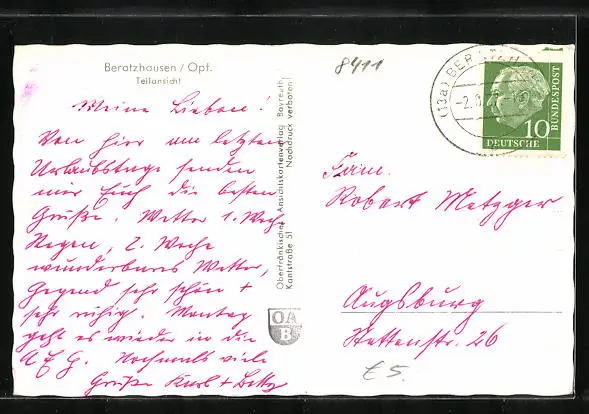 Beratzhausen / Opf.
Teilansicht
8411
(13a) BERATZH
-2.
10
DEUTSCHE
BUNDESPOST
Meine Lieben.
Von hier am letzten
Urlaubstage senden
wir Euch die besten
Grüße. Wetter 1. Woche
Regen, 2. Woche
wunderbares Wetter,
Gegend sehr schön +
sehr ruhig. Montag
geht es wieder in die
A & G. Nochmals viele
Grüße Karl + Betty
Oberfränkischer Ansichtskartenverlag Bayreuth
Kantstraße 51 Nachdruck verboten!
OA
B
Fam.
Robert Metzger
Augsburg
Stettenstr. 26
£5.